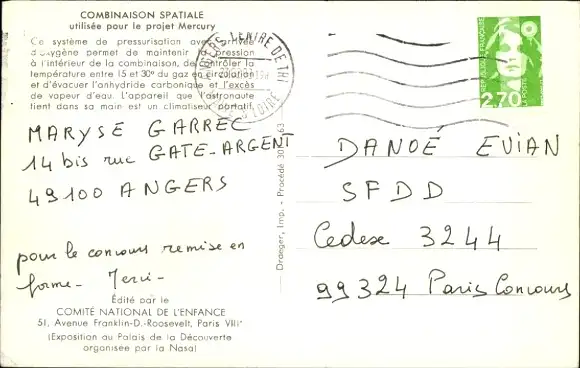 COMBINAISON SPATIALE
utilisée pour le projet Mercury
Ce système de pressurisation avec arrivée
d'oxygène permet de maintenir la pression
à l'intérieur de la combinaison, de contrôler la
température entre 15 et 30° du gaz en circulation
et d'évacuer l'anhydride carbonique et l'excès
de vapeur d'eau. L'appareil que l'astronaute
tient dans sa main est un climatiseur portatif.
MARYSE GARREC
14 bis rue GATE-ARGENT
49100 ANGERS
pour le concours remise en
forme - Merci -
Édité par le
COMITÉ NATIONAL DE L'ENFANCE
51, Avenue Franklin-D.-Roosevelt, Paris VIIIe
(Exposition au Palais de la Découverte
organisée par la Nasa)
Draeger, Imp. - Procédé 301 63
RÉPUBLIQUE FRANÇAISE
2,70
LA POSTE
DANOÉ EVIAN
SFDD
Cedex 3244
99324 Paris Concours